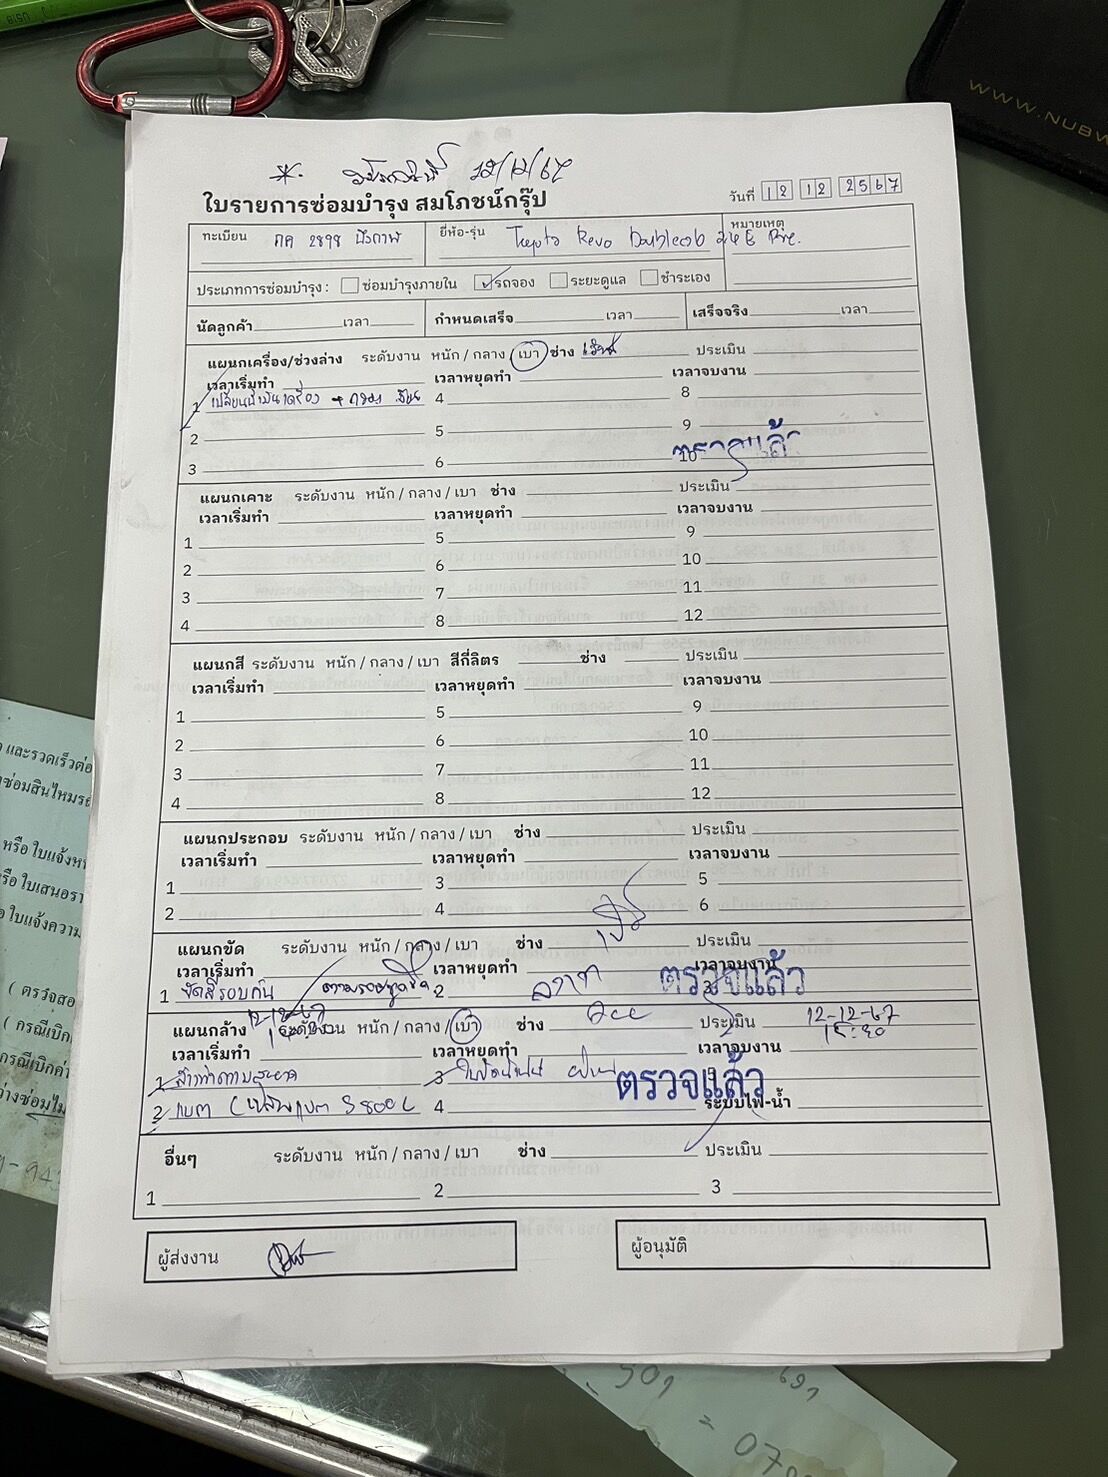 WWW.NUBW
12/12/67
ใบรายการซ่อมบำรุง สมโภชน์กรุ๊ป
วันที่ 12 12 2567
ทะเบียน กค 2898 บึงกาฬ ยี่ห้อ-รุ่น Toyota Revo Doublecab 2.4 E Pre. หมายเหตุ
ประเภทการซ่อมบำรุง : ซ่อมบำรุงภายใน รถจอง ระยะดูแล ชำระเอง
นัดลูกค้า เวลา กำหนดเสร็จ เวลา เสร็จจริง เวลา
แผนกเครื่อง/ช่วงล่าง ระดับงาน หนัก / กลาง / เบา ช่าง ประเมิน
เวลาเริ่มทำ เวลาหยุดทำ เวลาจบงาน
1 เปลี่ยนน้ำมันเครื่อง + กรอง 4 8
2 5 9
3 6 10 ตรวจแล้ว
แผนกเคาะ ระดับงาน หนัก / กลาง / เบา ช่าง ประเมิน
เวลาเริ่มทำ เวลาหยุดทำ เวลาจบงาน
1 5 9
2 6 10
3 7 11
4 8 12
แผนกสี ระดับงาน หนัก / กลาง / เบา สีกี่ลิตร ช่าง ประเมิน
เวลาเริ่มทำ เวลาหยุดทำ เวลาจบงาน
1 5 9
2 6 10
3 7 11
4 8 12
แผนกประกอบ ระดับงาน หนัก / กลาง / เบา ช่าง ประเมิน
เวลาเริ่มทำ เวลาหยุดทำ เวลาจบงาน
1 3 5
2 4 6
แผนกขัด ระดับงาน หนัก / กลาง / เบา ช่าง ประเมิน
เวลาเริ่มทำ เวลาหยุดทำ เวลาจบงาน
1 ขัดสีรอบคัน 2 3 ตรวจแล้ว
12-12-67
แผนกล้าง ระดับงาน หนัก / กลาง / เบา ช่าง Ace ประเมิน 12-12-67
เวลาเริ่มทำ เวลาหยุดทำ เวลาจบงาน
1 ล้างทำความสะอาด 3 ตรวจแล้ว
2 แบต 4 ระบบไฟ-น้ำ
อื่นๆ ระดับงาน หนัก / กลาง / เบา ช่าง ประเมิน
1 2 3
ผู้ส่งงาน ผู้อนุมัติ
และรวดเร็วต่อ
ซ่อมสินไหมรถ
หรือ ใบแจ้งห
ใบเสนอรา
ใบแจ้งความ
( ตรวจสอ
( กรณีเบิก
กรณีเบิกค่า
ว่างซ่อมไม่